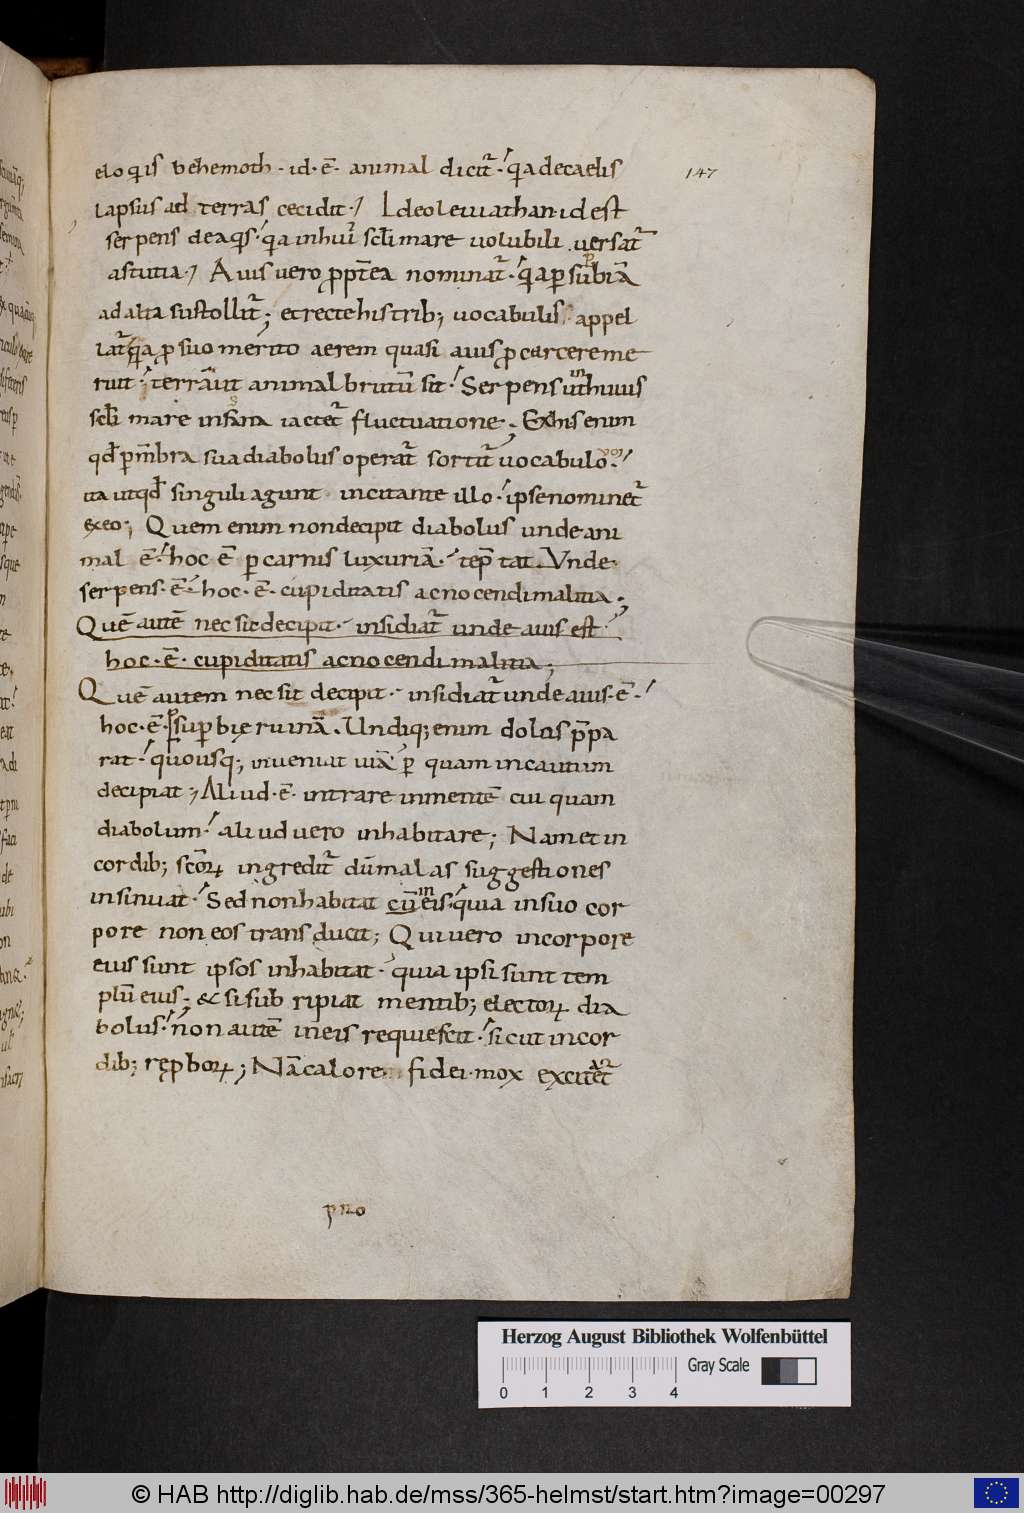 eloqiis behemoth · id · ē · animal dicit᷑ · q̓a decaelis
lapsus ad terras cecidit · / Ideo leuiathan · id est
serpens deaq̓s · q̓a inhui᷑ scl̄i mare uolubili uersat᷑
astutia · / Auis uero ꝓpt̄ea nominat᷑ · q̓a ꝑ subiā
ad alta sustollit᷑ ; et recte his trib; uocabulis appel
lat᷑ q̓a ꝓ suo merito aerem quasi auis ꝓ carcere me
ruit · terrā ut animal brutū sit · Serpens ut in huius
scl̄i mare insana iactet᷑ fluctuatione · Ex his enim
qd̄ ꝑ m̄bra sua diabolus operat᷑ sortit᷑ uocabulo · /
ita ut qd̄ singuli agunt incitante illo · ipse nominet᷑
ex eo ; Quem enim non decipit diabolus unde ani
mal ē · hoc ē ꝑ carnis luxuriā · tēptat · Unde
serpens · ē · hoc · ē · cupiditatis ac nocendi malitia ·
Quē autē nec sic decipit · insidiat᷑ unde auis est ·
hoc · ē · cupiditatis ac nocendi malitia ;
Quē autem nec sit decipit · insidiat᷑ unde auis · ē · /
hoc · ē · suꝑbię ruinā . Undiq; enim dolos p̄pa
rat · quousq; inueniat uiā ꝑ quam incautum
decipiat ; Aliud · ē · intrare in mentē cui quam
diabolum · aliud uero inhabitare ; Nam et in
cordib; sc̄oꝝ ingredit᷑ dū malas suggestiones
insinuat · Sed non habitat cū in eis · quia in suo cor
pore non eos transducit ; Qui uero in corpore
eius sunt ipsos inhabitat · quia ipsi sunt tem
plū eius ; & si subripiat mentib; electoꝝ dia
bolus · non autē in eis requiescit · sicut in cor
dib; reꝓboꝝ ; Nā calore fidei · mox excitet᷑
147
Herzog August Bibliothek Wolfenbüttel
Gray Scale
0 1 2 3 4
© HAB http://diglib.hab.de/mss/365-helmst/start.htm?image=00297